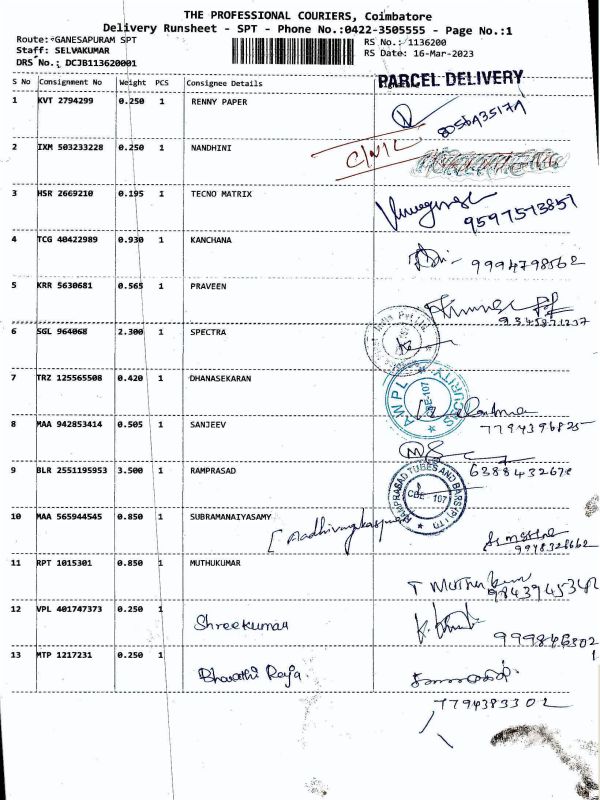 THE PROFESSIONAL COURIERS, Coimbatore
Delivery Runsheet - SPT - Phone No.:0422-3505555 - Page No.:1
Route: GANESAPURAM SPT
Staff: SELVAKUMAR
DRS No.: DCJB113620001
RS No.: 1136200
RS Date: 16-Mar-2023
S No Consignment No Weight PCS Consignee Details
PARCEL DELIVERY
1 KVT 2794299 0.250 1 RENNY PAPER
2 IXM 503233228 0.250 1 NANDHINI
C/N/L
3 HSR 2669210 0.195 1 TECNO MATRIX
9597513857
4 TCG 40422989 0.930 1 KANCHANA
9994798562
5 KRR 5630681 0.565 1 PRAVEEN
6 SGL 964068 2.300 1 SPECTRA
7 TRZ 125565508 0.420 1 DHANASEKARAN
AWPL SECURITY
CBE-107
7794396825
8 MAA 942853414 0.505 1 SANJEEV
9 BLR 2551195953 3.500 1 RAMPRASAD
RAMPRASAD TUBES AND BARS (P) LTD
CBE 107
10 MAA 565944545 0.850 1 SUBRAMANAIYASAMY
9948328662
11 RPT 1015301 0.850 1 MUTHUKUMAR
T Muthu kum
12 VPL 401747373 0.250 1 Shreekumar
13 MTP 1217231 0.250 1 Bharathi Raja
7794383302